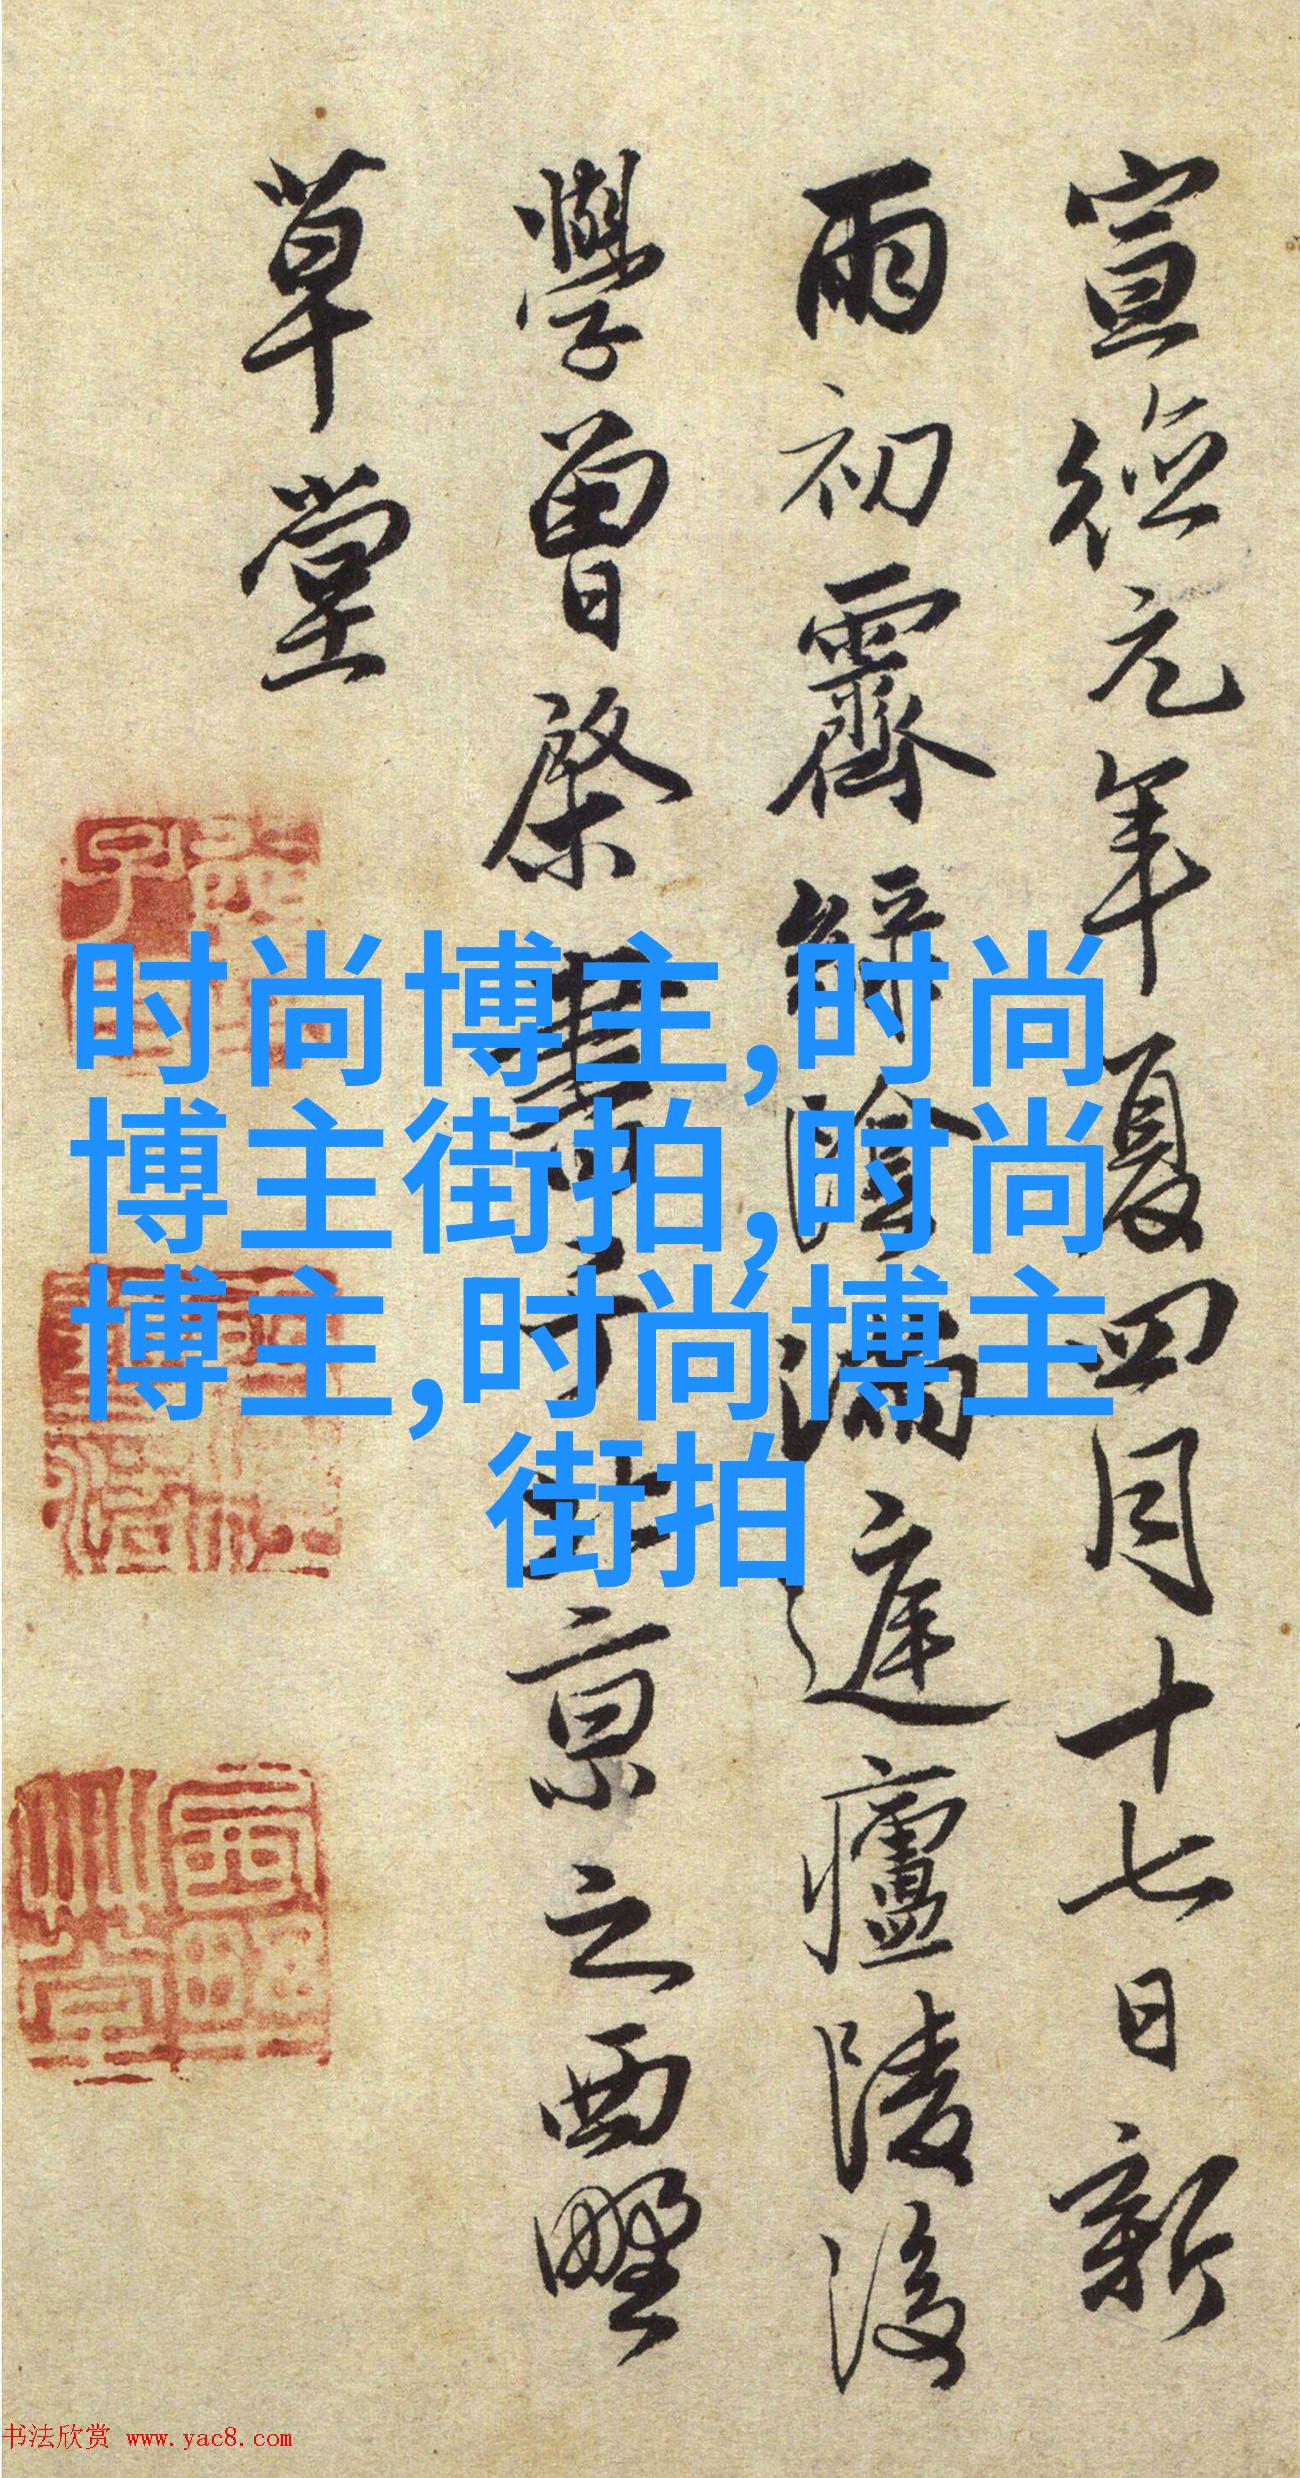 宣德元年夏四月十七日新
雨初霽陰滿庭廬陵後
學曾棨書于北京之西墅
草堂
时尚博主,时尚
博主街拍,时尚
博主,时尚博主
街拍
书法欣赏 www.yac8.com